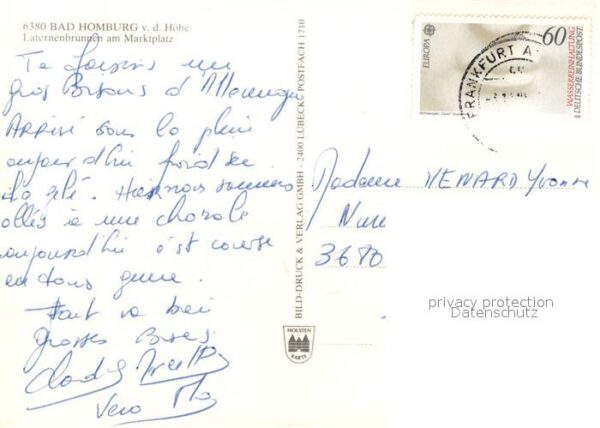 6380 BAD HOMBURG v. d. Höhe
Laternenbrunnen am Marktplatz
Te faisons un
gros Bisous d'Allemagne
Arrivé sous la pluie
aujourd'hui froid
Hier nous sommes
allés à une chorale
aujourd'hui c'est course
en tous genre.
Tout va bien
Grosses Bises
Vero
BILD-DRUCK & VERLAG GMBH - 2400 LÜBECK, POSTFACH 1710
HOLSTEN
KARTE
EUROPA
60
WASSERREINHALTUNG
DEUTSCHE BUNDESPOST
FRANKFURT A
Madame VENARD Yvonne
privacy protection
Datenschutz